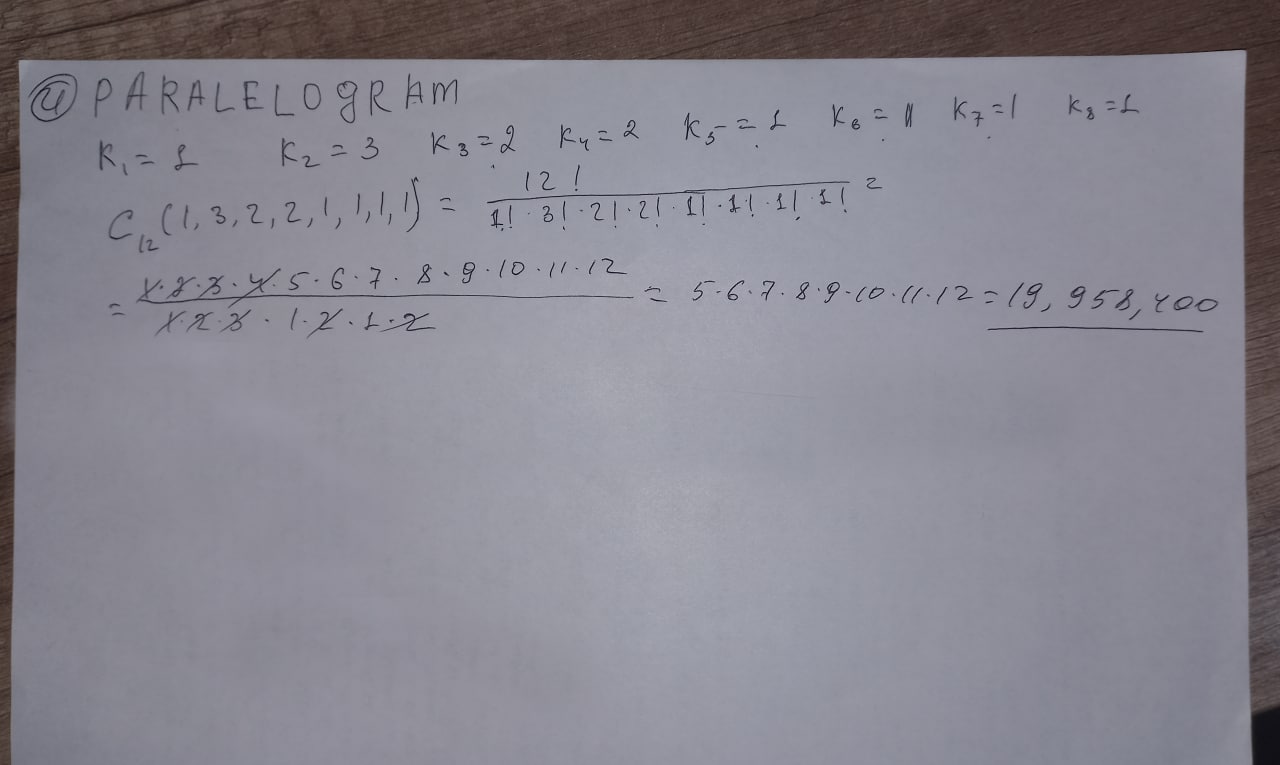 ④ PARALELOgRAM
K₁ = 1 K₂ = 3 K₃ = 2 K₄ = 2 K₅ = 1 K₆ = 1 K₇ = 1 K₈ = 1
C₁₂(1, 3, 2, 2, 1, 1, 1, 1) = 12! / 1! · 3! · 2! · 2! · 1! · 1! · 1! · 1! =
= 1·2·3·4·5·6·7·8·9·10·11·12 / 1·2·3·1·2·1·2 = 5·6·7·8·9·10·11·12 = 19,958,400